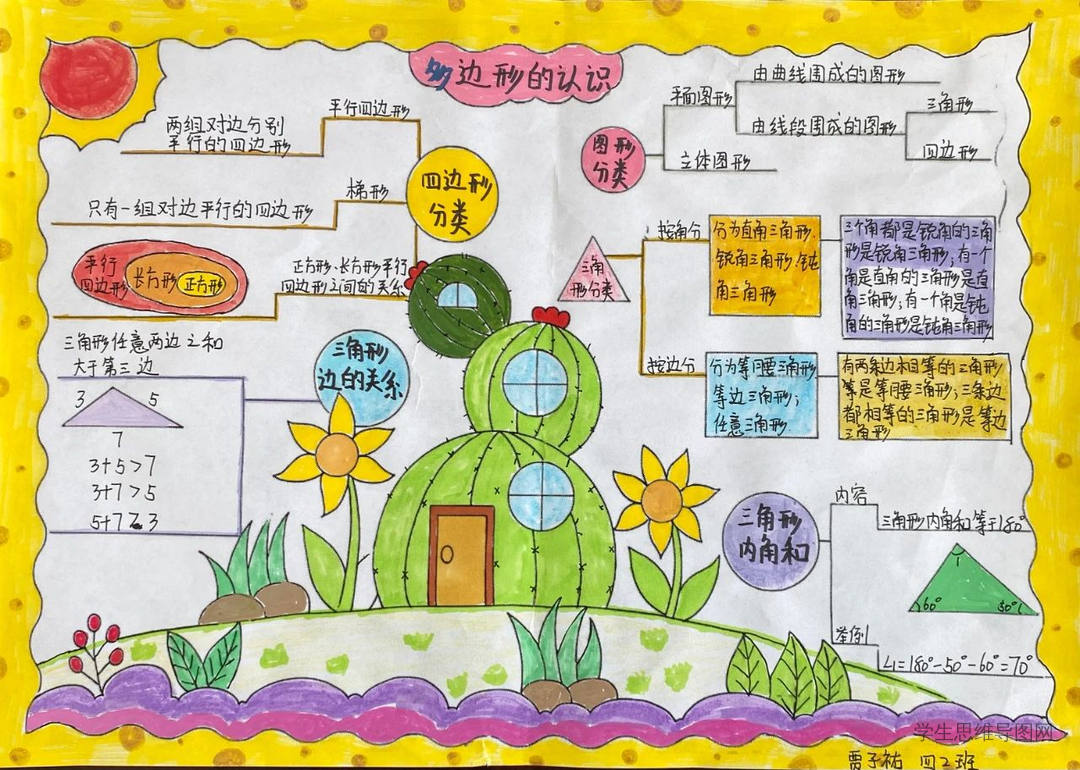 多边形的认识
两组对边分别
平行的四边形
平行四边形
四边形
分类
梯形
只有一组对边平行的四边形
正方形、长方形平行
四边形之间的关系
平行
四边形
长方形
正方形
三角形任意两边之和
大于第三边
三角形
边的关系
3
5
7
3+5>7
3+7>5
5+7>3
图形
分类
平面图形
由曲线围成的图形
由线段围成的图形
三角形
四边形
立体图形
三角
形分类
按角分
分为直角三角形.
锐角三角形.钝
角三角形
三个角都是锐角的三角
形是锐角三角形;有一个
角是直角的三角形是直
角三角形;有一个角是钝
角的三角形是钝角三角形
按边分
分为等腰三角形
等边三角形;
任意三角形
有两条边相等的三角形
等是等腰三角形;三条边
都相等的三角形是等边
三角形
三角形
内角和
内容
三角形内角和等于180°
1
60°
50°
举例
∠1=180°-50°-60°=70°
学生思维导图网
贾子祐 四2班